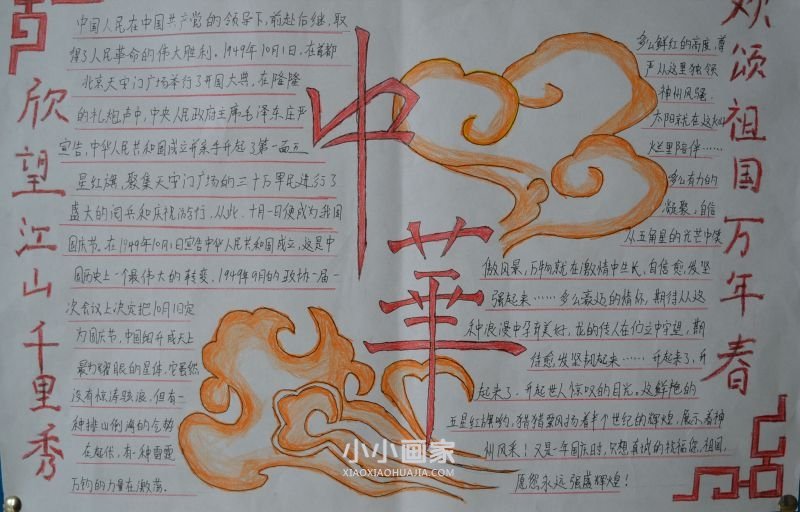 欣望江山千里秀
中国人民在中国共产党的领导下,前赴后继,取
得了人民革命的伟大胜利。1949年10月1日,在首都
北京天安门广场举行了开国大典,在隆隆
的礼炮声中,中央人民政府主席毛泽东庄严
宣告,中华人民共和国成立并亲手升起了第一面五
星红旗,聚集天安门广场的三十万军民进行了
盛大的阅兵和庆祝游行,从此,十月一日便成为我国
国庆节。在1949年10月1日宣告中华人民共和国成立,这是中
国历史上一个最伟大的转变,1949年9月的政协一届一
次会议上决定把10月1日定
为国庆节,中国细升成天上
最为耀眼的星体,它虽然
没有惊涛骇浪,但有一
种排山倒海的气势
在起伏,有一种雷霆
万钧的力量在激荡。
中華
多么鲜红的高度,尊
严从这里独领
神州风骚.
太阳就在这火山
火兰里陪伴……
多么有力的
凝聚,自信
从五角星的光芒中笑
傲风景,万物就在激情中生长,自信愈发坚
强起来……多么豪迈的情怀,期待从这
种浪漫中孕育美好,龙的传人在伫立中守望,期
待愈发坚韧起来……升起来了,升
起来了.升起世人惊叹的目光,这鲜艳的
五星红旗哟,猎猎飘扬着半个世纪的辉煌,展示着神
州风采!又是一年国庆时,只想真诚的祝福您,祖国,
愿您永远强盛辉煌!
欢颂祖国万年春
小小画家
XIAOXIAOHUAJIA.COM